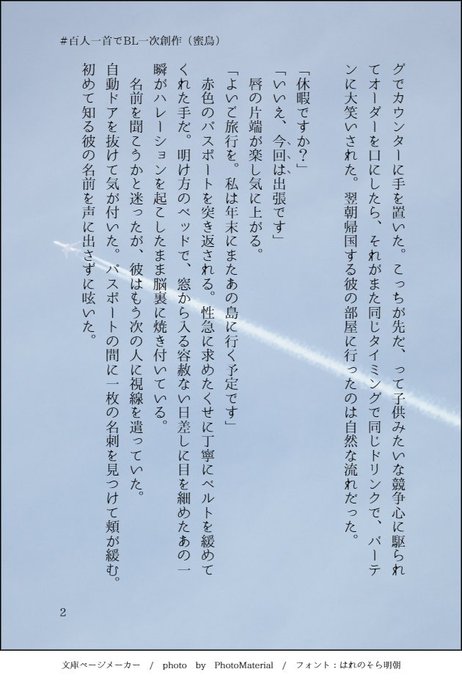 #百人一首でBL一次創作（蜜鳥）
グでカウンターに手を置いた。こっちが先だ、って子供みたいな競争心に駆られ
てオーダーを口にしたら、それがまた同じタイミングで同じドリンクで、バーテ
ンに大笑いされた。翌朝帰国する彼の部屋に行ったのは自然な流れだった。
「休暇ですか？」
「いいえ、今回は出張です」
唇の片端が楽し気に上がる。
「よいご旅行を。私は年末にまたあの島に行く予定です」
赤色のパスポートを突き返される。性急に求めたくせに丁寧にベルトを緩めて
くれた手だ。明け方のベッドで、窓から入る容赦ない日差しに目を細めたあの一
瞬がハレーションを起こしたまま脳裏に焼き付いている。
名前を聞こうかと迷ったが、彼はもう次の人に視線を遣っていた。
自動ドアを抜けて気が付いた。パスポートの間に一枚の名刺を見つけて頬が緩む。
初めて知る彼の名前を声に出さずに呟いた。
2
文庫ページメーカー / photo by PhotoMaterial / フォント：はれのそら明朝